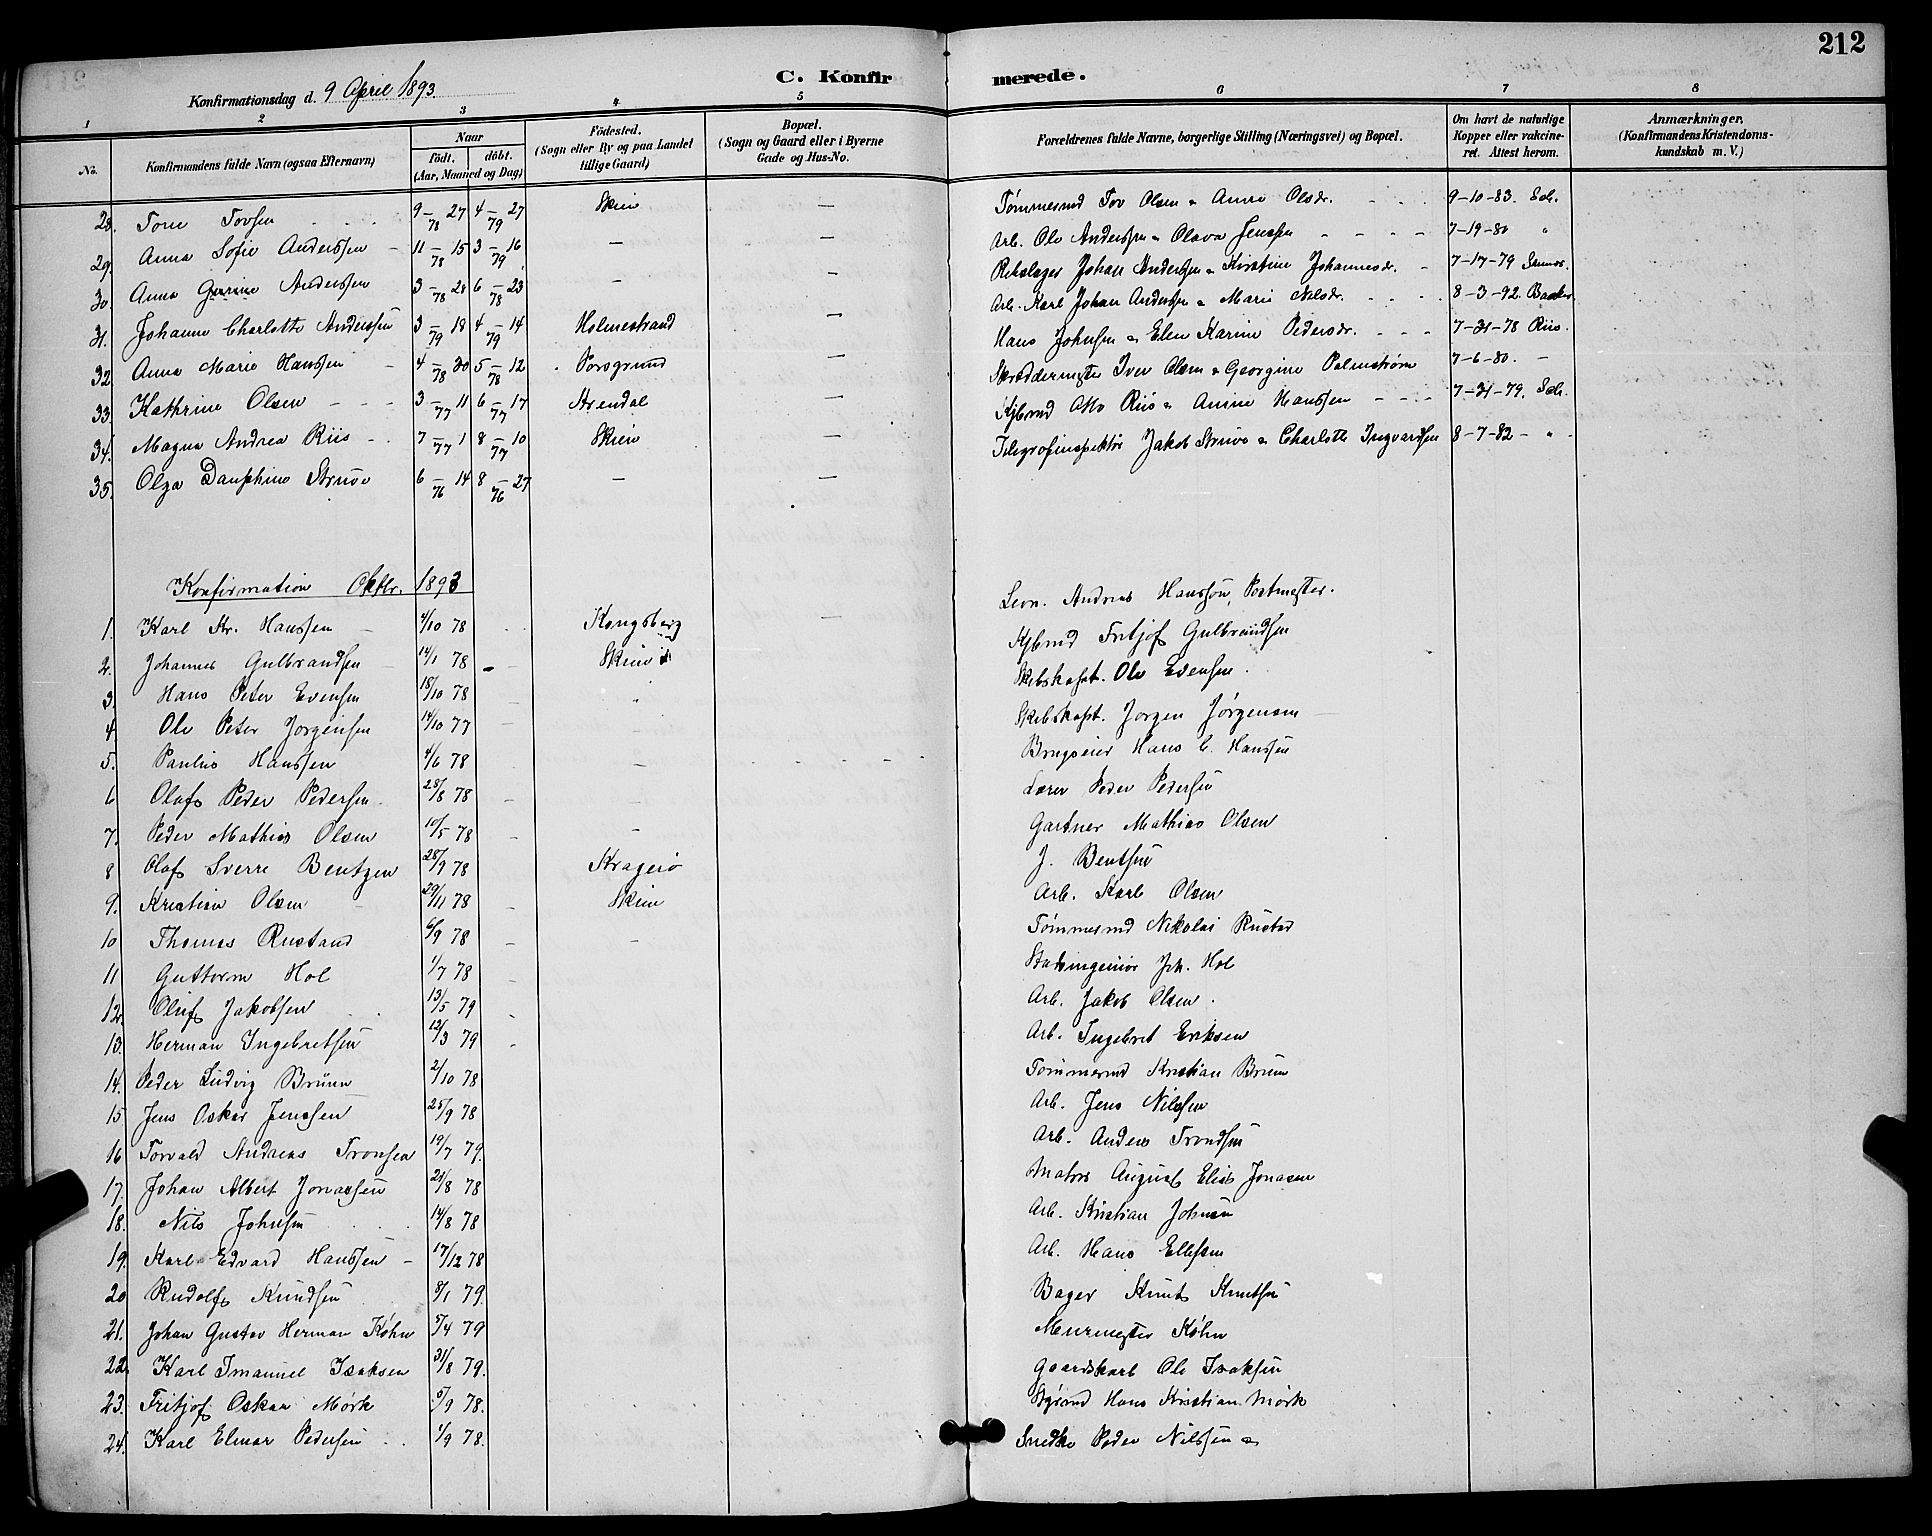 212
Konfirmationsdag d. 9 April 1893.
C. Konfir merede.
1 2 3 4 5 6 7 8
No.
Konfirmandens fulde Navn (ogsaa Efternavn)
Naar
født. døbt.
(Aar, Maaned og Dag)
Fødested.
(Sogn eller By og paa Landet
tillige Gaard)
Bopæl.
(Sogn og Gaard eller i Byerne
Gade og Hus-No.
Forældrenes fulde Navne, borgerlige Stilling (Næringsvei) og Bopæl.
Om havt de naturlige
Kopper eller vakcine-
ret. Attest herom.
Anmærkninger.
(Konfirmandens Kristendoms-
kundskab m. V.)
28. Tone Tovsen 9-27 78 4-27 79 Skien — Tømmermd Tov Olsen & Anne Olsdr. 9-10-83. Sch.
29. Anna Sofie Anderssen 11-15 78 3-16 79 — — Arb. Ole Anderssen & Olava Jenssen 7-19-80 "
30. Anna Gurine Anderssen 3-28 78 6-23 78 — — Rebslager Johan Anderssen & Kirstine Johannesdr. 7-17-79
31. Johanne Charlotte Anderssen 3-19 79 4-14 79 Holmestrand — Arb. Karl Johan Anderssen & Marie Nilsdr. 8-3-92.
32. Anna Marie Hanssen 4-20 78 5-12 78 Porsgrund — Hans Johnsen & Elen Karine Pedersdr. 7-31-78 Riis.
33. Kathrine Olsen 3-11 77 6-17 77 Arendal — Skræddermester Iver Olsen & Georgine Palmstrøm 7-6-80. —
34. Magna Andrea Riis 7-1 77 8-10 77 Skien — Kjbmd Otto Riis & Anine Hanssen 7-31-79. Sch.
35. Olga Dauphine Struve 6-14 76 8-27 76 — — Telegrafinspektør Jakob Struve & Charlotte Ingvardsen 8-7-82 - "
Konfirmation Oktbr. 1893
1. Karl Kr. Hanssen 4/10 78 Kongsberg — Andreas Hanssen, Postmester.
2. Johannes Gulbrandsen 14/1 78 Skien Kjbmd Fritjof Gulbrandsen
3. Hans Peter Evensen 18/10 78 " Skibskapt. Ole Evensen.
4. Ole Peter Jørgensen 14/10 77 — Skibskapt. Jørgen Jørgensen
5. Paulus Hanssen 4/6 78 — Brugseier Hans C. Hanssen
6 Olaf Peder Pedersen 28/8 78 — Lærer Peder Pedersen
7. Peder Mathias Olsen 10/5 78 — Gartner Mathias Olsen
8 Olaf Sverre Bentzen 28/9 78 Kragerø J. Bentsen
9. Kristian Olsen 29/11 78 Skien Arb. Karl Olsen
10 Thomas Rustand 6/9 78 — Tømmermd Nikolai Rustad
11 Guttorm Hol 1/7 78 Stadsingeniør Joh. Hol
12. Oluf Jakobsen 13/5 79 Arb. Jakob Olsen.
13. Herman Ingebretsen 12/3 79 Arb. Ingebret Eriksen
14. Peder Ludvig Bruun 2/10 78 Tømmermd Kristian Bruun
15 Jens Oskar Jenssen 25/9 78 Arb. Jens Nilssen
16 Torvald Andreas Tronsen 19/7 79. Arb. Anders Trondsen
17. Johan Albert Jonassen 21/8 78 Matros August Elias Jonasen
18. Nils Johnsen 14/8 78 Arb. Kristian Johnsen
19. Karl Edvard Hanssen 17/12 78 Arb. Hans Ellefsen
20 Rudolf Knudsen 8/1 79. Bager Knut Knutsen
21. Johan Gustav Herman Køhn 5/4 79 Murmester Køhn
22. Karl Imanuel Isaksen 31/8 79. Gaardskarl Ole Isaksen
23. Fritjof Oskar Mørk 5/9 78. Styrmd Hans Kristian Mørk
24. Karl Elmar Pedersen 1/9 78. Snedker Peder Nilssen &